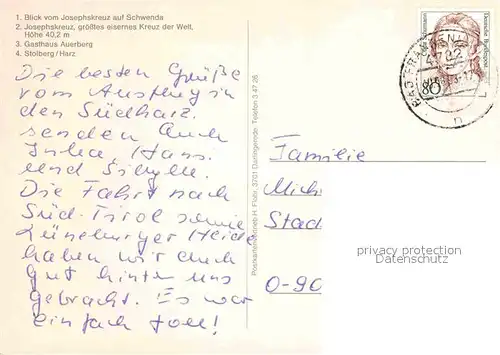 1. Blick vom Josephskreuz auf Schwenda
2. Josephskreuz, größtes eisernes Kreuz der Welt,
Höhe 40,2 m
3. Gasthaus Auerberg
4. Stolberg/Harz
Die besten Grüße
vom Ausflug in
den Südharz
senden Euch
Julia, Hansi
und Sibylle.
Die Fahrt nach
Süd-Tirol sowie
Lüneburger Heide
haben wir auch
gut hinter uns
gebracht. Es war
einfach toll!
Postkartenvertrieb H. Flohr, 3701 Darlingerode, Telefon 3 47 26
Deutsche Bundespost
80
4702
Familie
Mich
Stad
O-90
privacy protection
Datenschutz